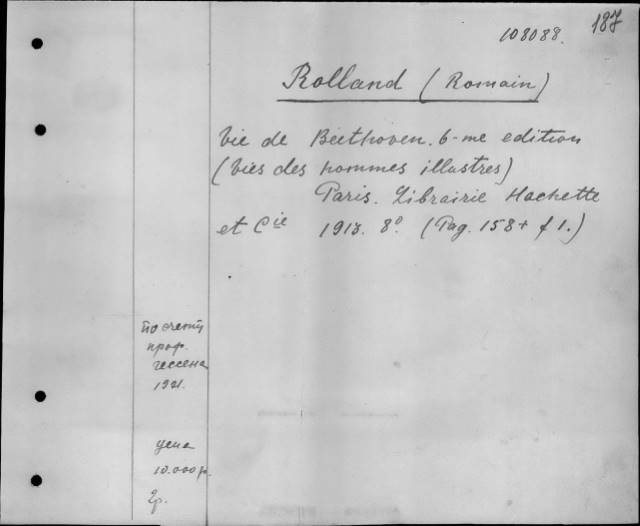 108088. 187
Rolland (Romain)
Vie de Beethoven. 6-me edition
(Vies des hommes illustres)
Paris. Librairie Hachette
et Cie 1913. 8º (Pag. 158 + f 1.)
по счету
проф.
Гессена
1921.
цена
10.000 р.
2р.